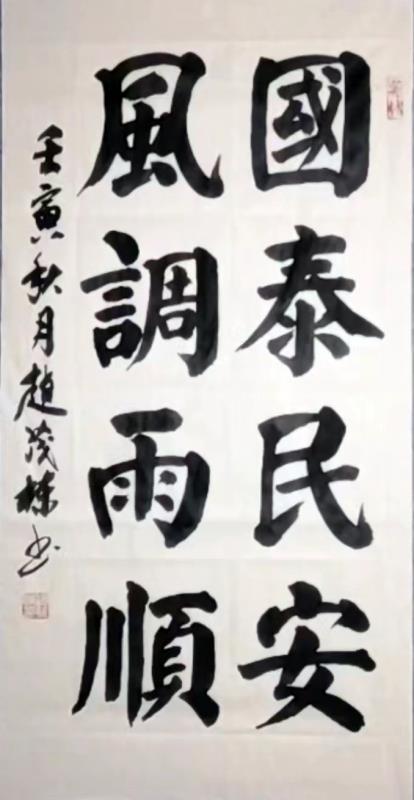 國泰民安
風調雨順
壬寅秋月趙茂棟书